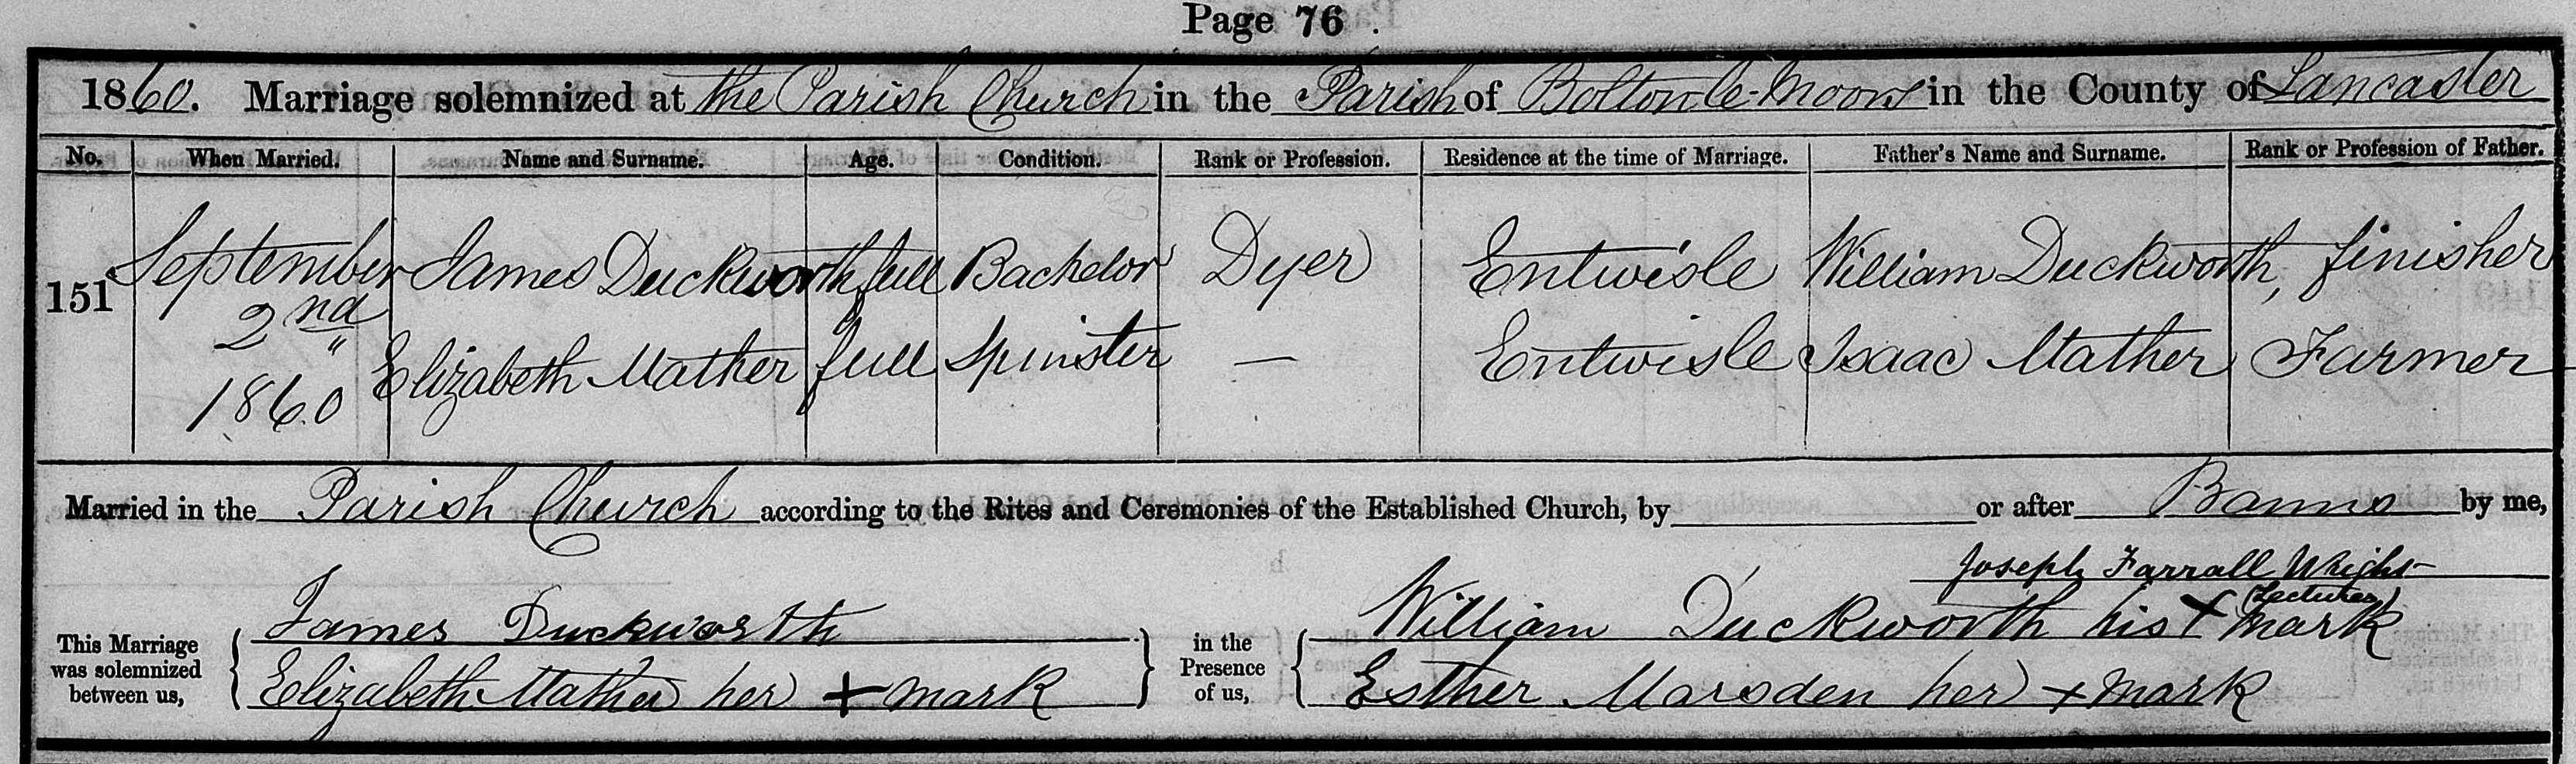 Page 76.
1860. Marriage solemnized at the Parish Church in the Parish of Bolton-le-Moors in the County of Lancaster
No. When Married. Name and Surname. Age. Condition. Rank or Profession. Residence at the time of Marriage. Father's Name and Surname. Rank or Profession of Father.
151 September James Duckworth full Bachelor Dyer Entwisle William Duckworth, finisher
2nd
Elizabeth Mather full Spinster — Entwisle Isaac Mather Farmer
1860
Married in the Parish Church according to the Rites and Ceremonies of the Established Church, by or after Banns by me,
Joseph Farrall Wright
(Lecturer)
This Marriage was solemnized between us,
James Duckworth
Elizabeth Mather her + mark
in the Presence of us,
William Duckworth his + mark
Esther Marsden her + mark